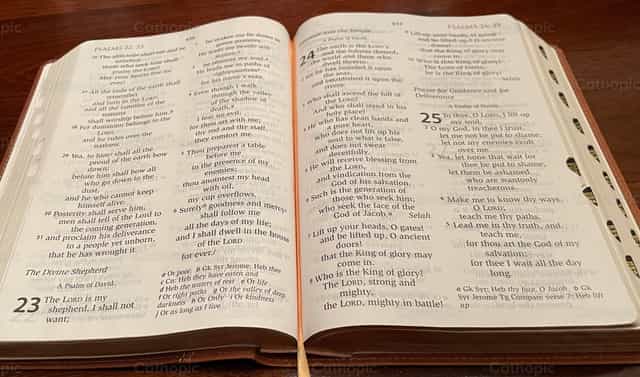 PSALMS 22, 23
26 The afflicted shall eat and be
satisfied;
those who seek him shall
praise the LORD!
May your hearts live for
ever!
27 All the ends of the earth shall
remember
and turn to the LORD;
and all the families of the
nations
shall worship before him.
28 For dominion belongs to the
LORD,
and he rules over the
nations.
29 Yea, to him shall all the
proud of the earth bow
down;
before him shall bow all
who go down to the
dust,
and he who cannot keep
himself alive.
30 Posterity shall serve him;
men shall tell of the Lord to
the coming generation,
31 and proclaim his deliverance
to a people yet unborn,
that he has wrought it.
The Divine Shepherd
A Psalm of David.
23 The LORD is my
shepherd, I shall not
want;
he makes me lie down in
green pastures.
He leads me beside still
waters;
he restores my soul.
He leads me in paths of
righteousness
for his name's sake.
4 Even though I walk
through the valley
of the shadow of
death,
I fear no evil;
for thou art with me;
thy rod and thy staff,
they comfort me.
5 Thou preparest a table
before me
in the presence of my
enemies;
thou anointest my head
with oil,
my cup overflows.
6 Surely goodness and mercy
shall follow me
all the days of my life;
and I shall dwell in the house
of the LORD
for ever.
PSALMS 24, 25
A Psalm of David.
24 The earth is the LORD's
and the fulness thereof,
the world and those who
dwell therein;
2 for he has founded it upon
the seas,
and established it upon the
rivers.
3 Who shall ascend the hill of
the LORD?
And who shall stand in his
holy place?
4 He who has clean hands and
a pure heart,
who does not lift up his
soul to what is false,
and does not swear
deceitfully.
5 He will receive blessing from
the LORD,
and vindication from the
God of his salvation.
6 Such is the generation of
those who seek him,
who seek the face of the
God of Jacob. Selah
7 Lift up your heads, O gates!
and be lifted up, O ancient
doors!
that the King of glory may
come in.
8 Who is the King of glory?
The LORD, strong and
mighty,
the LORD, mighty in battle!
9 Lift up your heads, O gates!
and be lifted up, O ancient
doors!
that the King of glory may
come in.
10 Who is this King of glory?
The LORD of hosts,
he is the King of glory!
Selah
Prayer for Guidance and for
Deliverance
A Psalm of David.
25 To thee, O LORD, I lift up
my soul.
2 O my God, in thee I trust,
let me not be put to shame;
let not my enemies exult
over me.
3 Yea, let none that wait for
thee be put to shame;
let them be ashamed
who are wantonly
treacherous.
4 Make me to know thy ways,
O LORD;
teach me thy paths.
5 Lead me in thy truth, and
teach me,
for thou art the God of my
salvation;
for thee I wait all the day
long.
Cathopic